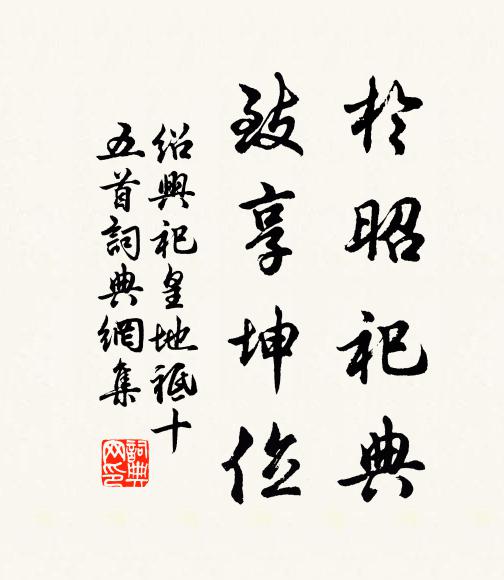 於昭祀典
致享坤位
紹興祀皇地祇十
五首詞典網集
詞典
网印